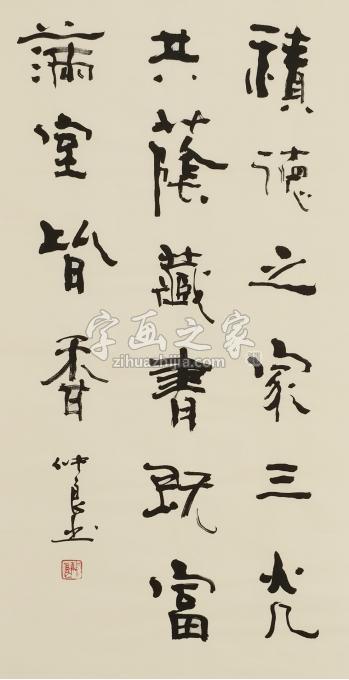 積德之家三光
共蔭藏書既富
滿室皆香 仲良书
字画之家
zihuazhijia.com